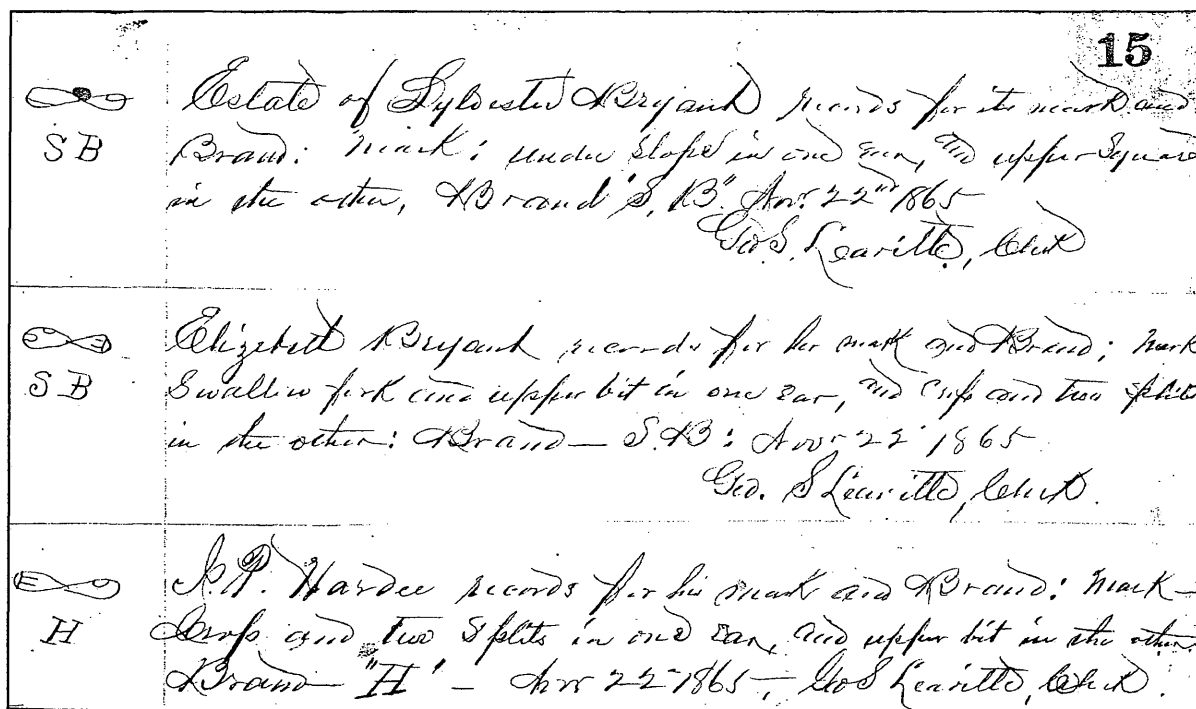 15
Estate of Sylvester Bryant records for its mark and
S B
Brand: Mark: under slope in one ear, and upper Square
in the other, Brand "S. B." Nov. 22nd 1865
Geo. S. Leavitt, Clerk
Elizabeth Bryant records for her mark and Brand; Mark
S B
Swallow fork and upper bit in one ear, and crop and two splits
in the other: Brand — S. B: Novr 22 1865
Geo. S Leavitt, Clerk.
P. Hardee records for his mark and Brand: Mark —
H
Crop and two Splits in one ear, and upper bit in the other
Brand — "H" — Nov 22 1865, Geo S Leavitt, Clerk.